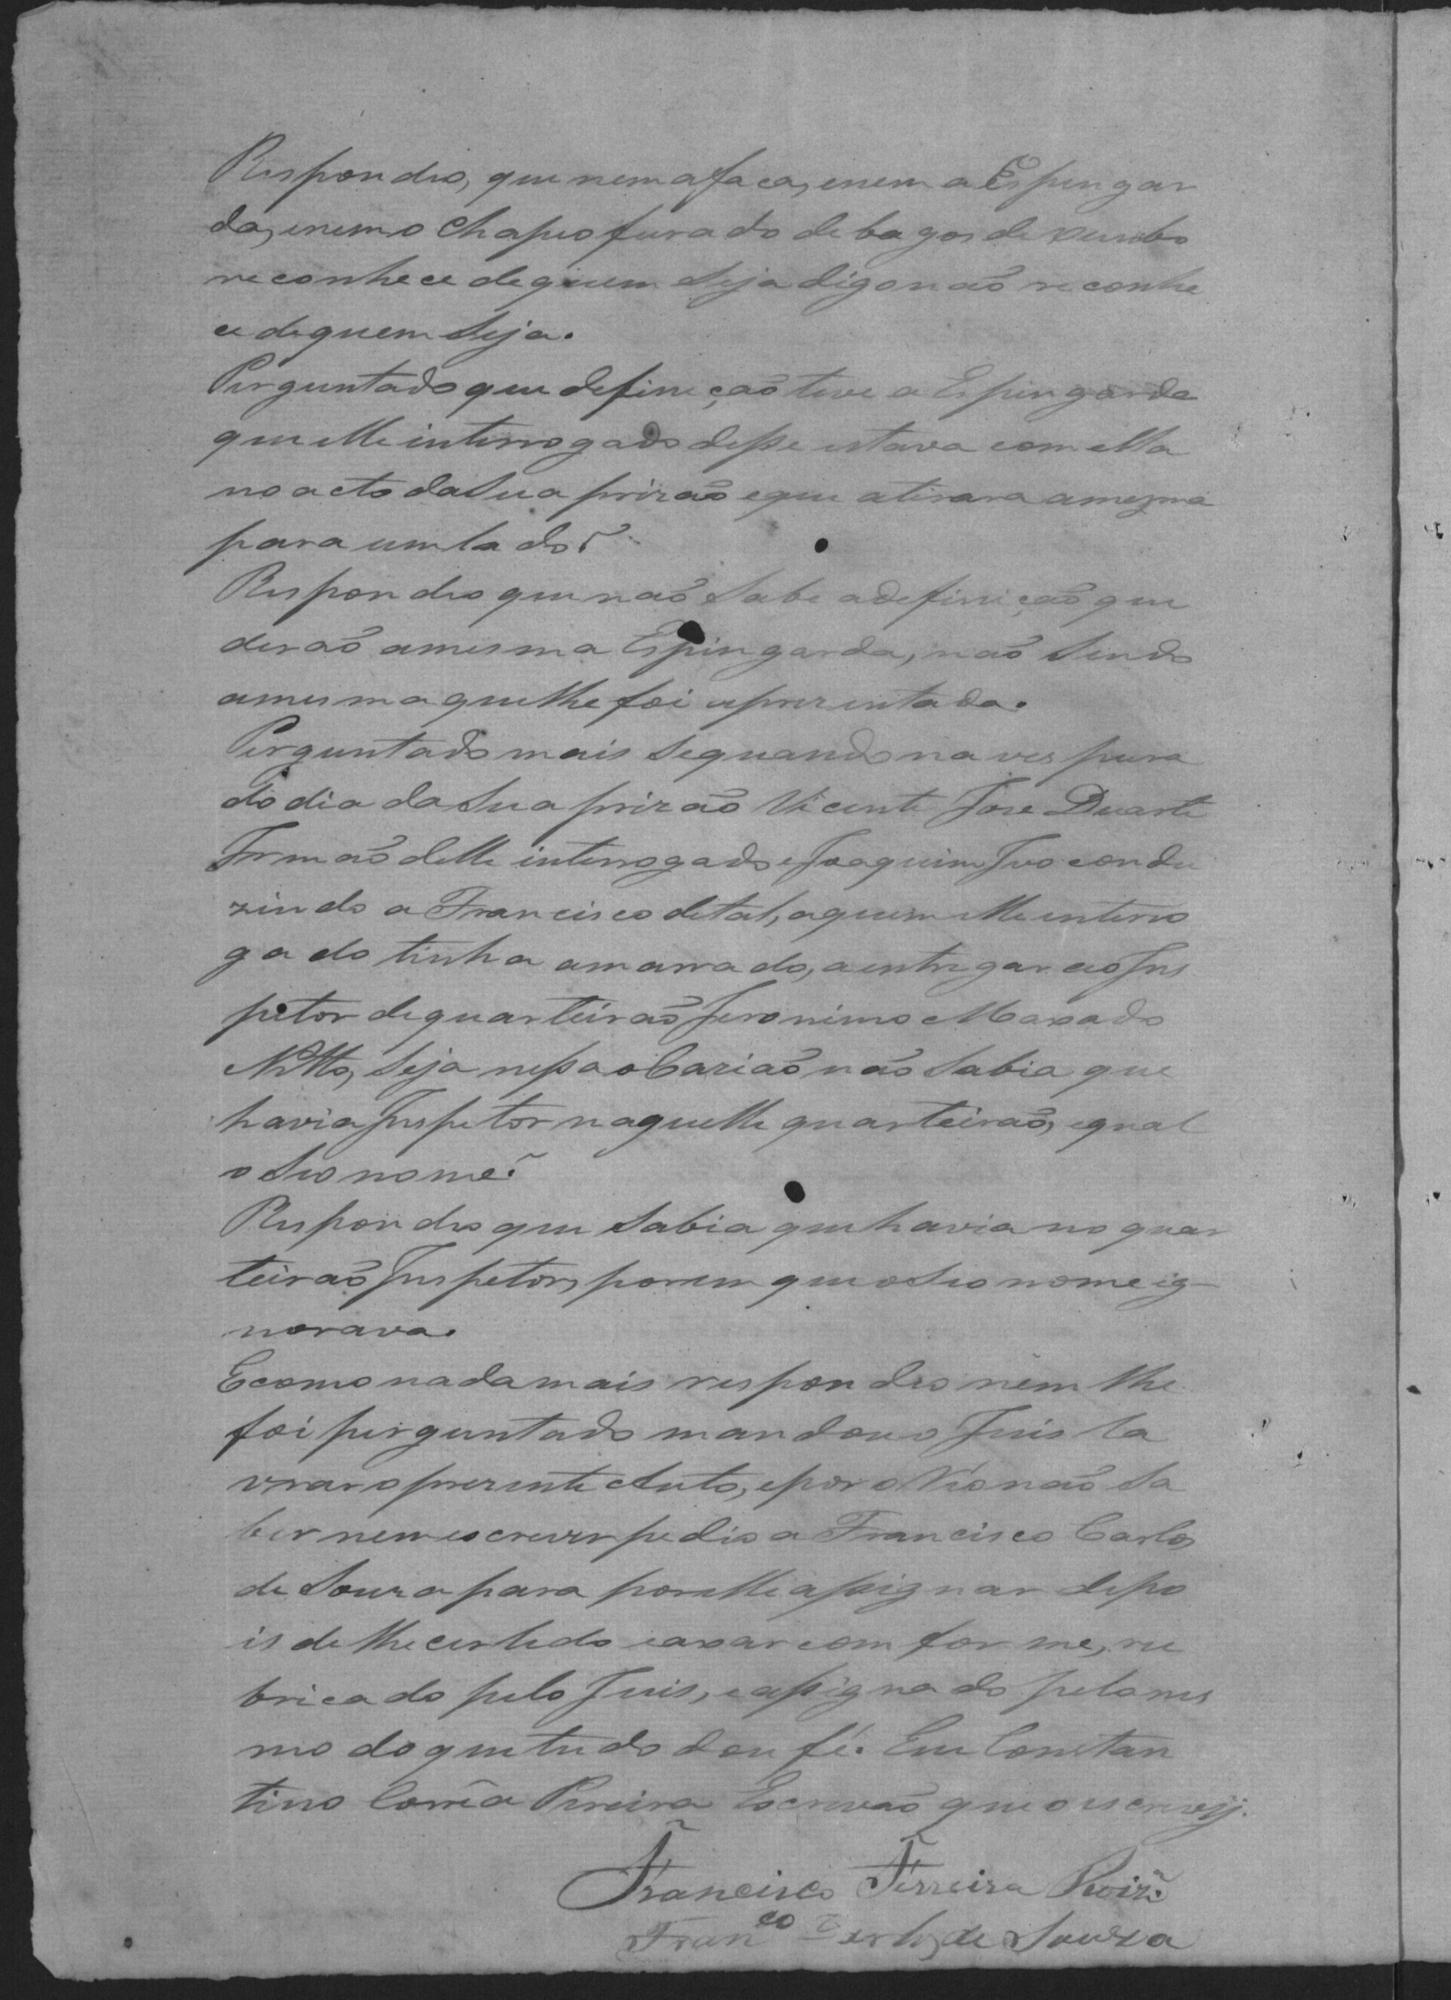 Respondeo, que nem a faca, e nem a Espingar
da, e nem o Chapeo furado de bagos de xumbo
reconhece de quem seja digo não reconhe
ce de quem seja.
Perguntado que defineção teve a Espingarda
que elle interrogado disse estava com ella
no acto da sua prizão e que atirara a mezma
para um lado?
Respondeo que não sabe a definição que
derão a mesma Espingarda, não sendo
a mesma que lhe foi aprezentada.
Perguntado mais se quando na vespura
do dia da sua prizão Vicente Jose Duarte
Irmão delle interrogado e Joaquim Ivo condu
zindo a Francisco de tal, a quem elle interro
gado tinha amarrado, a entregar ao Ins
petor de quarteirão Jeronimo Maxado
Netto, se ja nessa ocazião não sabia que
havia Inspetor naquelle quarteirão, e qual
o seo nome?
Respondeo que sabia que havia no quar
teirão Inspetor, porem que o seo nome ig-
norava.
E como nada mais respondeo nem lhe
foi perguntado mandou o Juis la
vrar o prezente Auto, e por o Réo não sa
ber nem escrever pedio a Francisco Carlos
de Souza para por elle assignar depo
is de lhe ser lido e axar comforme, ru
bricado pelo Juis, e assignado pelo mes
mo do que tudo dou fé. Eu Constan
tino Corrêa Pereira Escrivão que o escrevy.
Francisco Ferreira
Fran.co Carlos de Souza